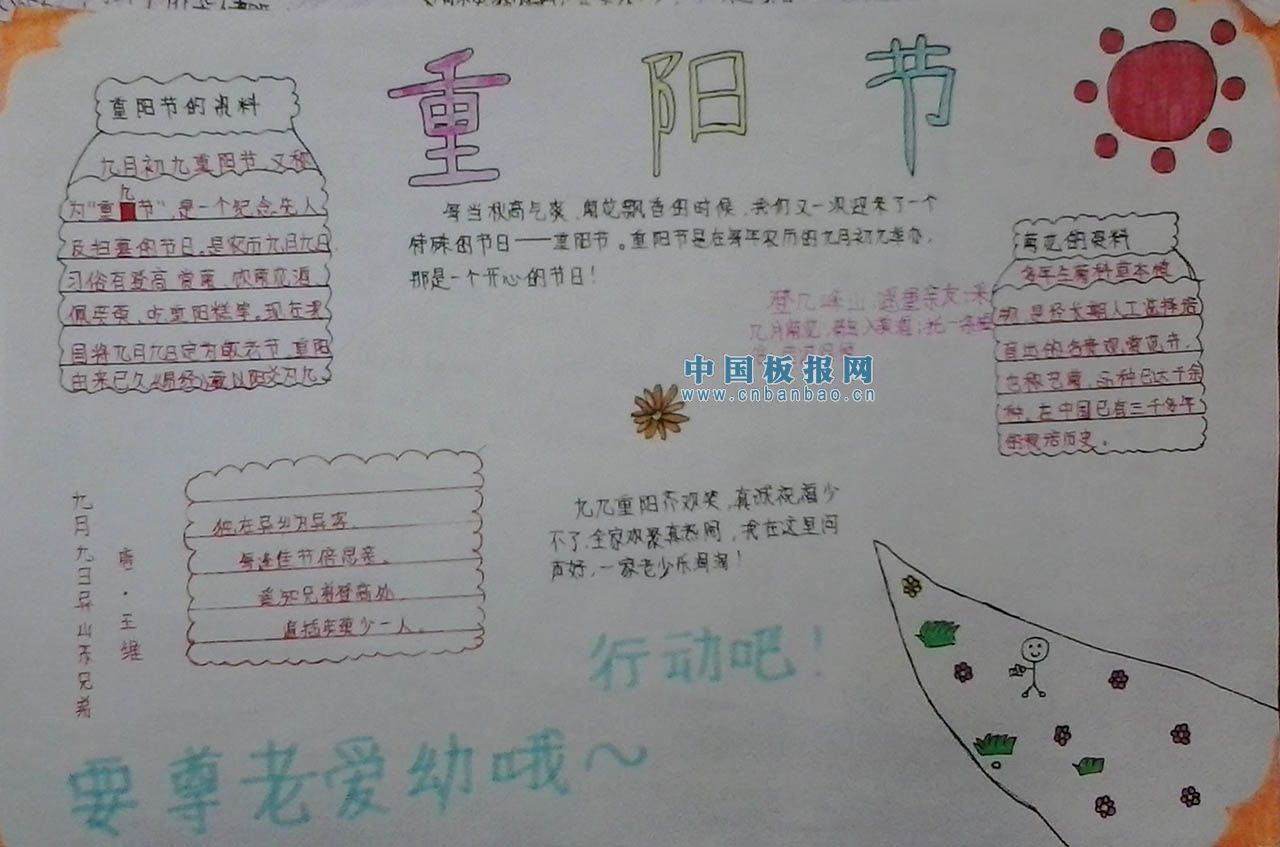 重阳节
重阳节的资料
九月初九重阳节,又称
为“重九节”,是一个纪念先人
及扫墓的节日。是农历九月九日,
习俗有登高,赏菊,饮菊花酒,
佩茱萸,吃重阳糕等。现在我
国将九月九日定为敬老节,重阳
由来已久《易经》以阳爻为九。
每当秋高气爽,菊花飘香的时候,我们又一次迎来了一个
特殊的节日——重阳节。重阳节是在每年农历的九月初九举办,
那是一个开心的节日!
登几峰山,遇里亲友;采
几月菊花,
菊花的资料
多年生菊科草本植
物,是经长期人工选择培
育出的名贵观赏花卉,
也称艺菊,品种已达千余
种。在中国已有三千多年
的栽培历史。
中国板报网
www.cnbanbao.cn
九月九日异山东兄弟
唐·王维
独在异乡为异客,
每逢佳节倍思亲。
遥知兄弟登高处,
遍插茱萸少一人。
九九重阳齐欢笑,真诚祝福少
不了,全家欢聚真热闹,我在这里问
声好,一家老少乐淘淘!
行动吧!
要尊老爱幼哦~